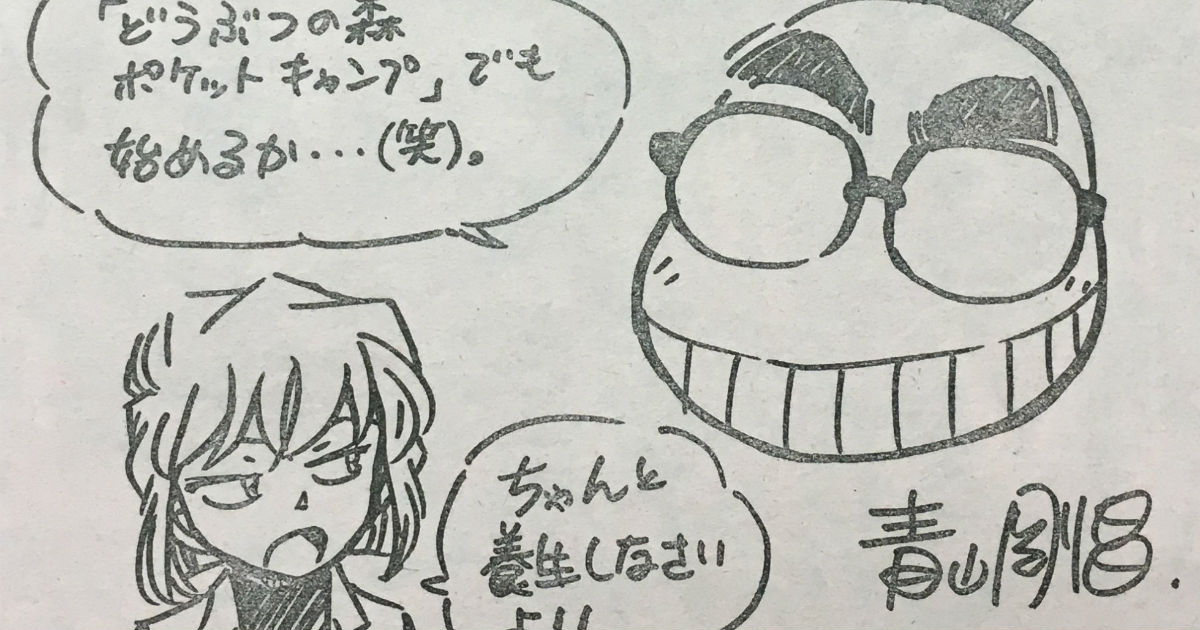 「どうぶつの森
ポケットキャンプ」でも
始めるか・・・(笑)。
ちゃんと
養生しなさい
よ!!
青山剛昌.